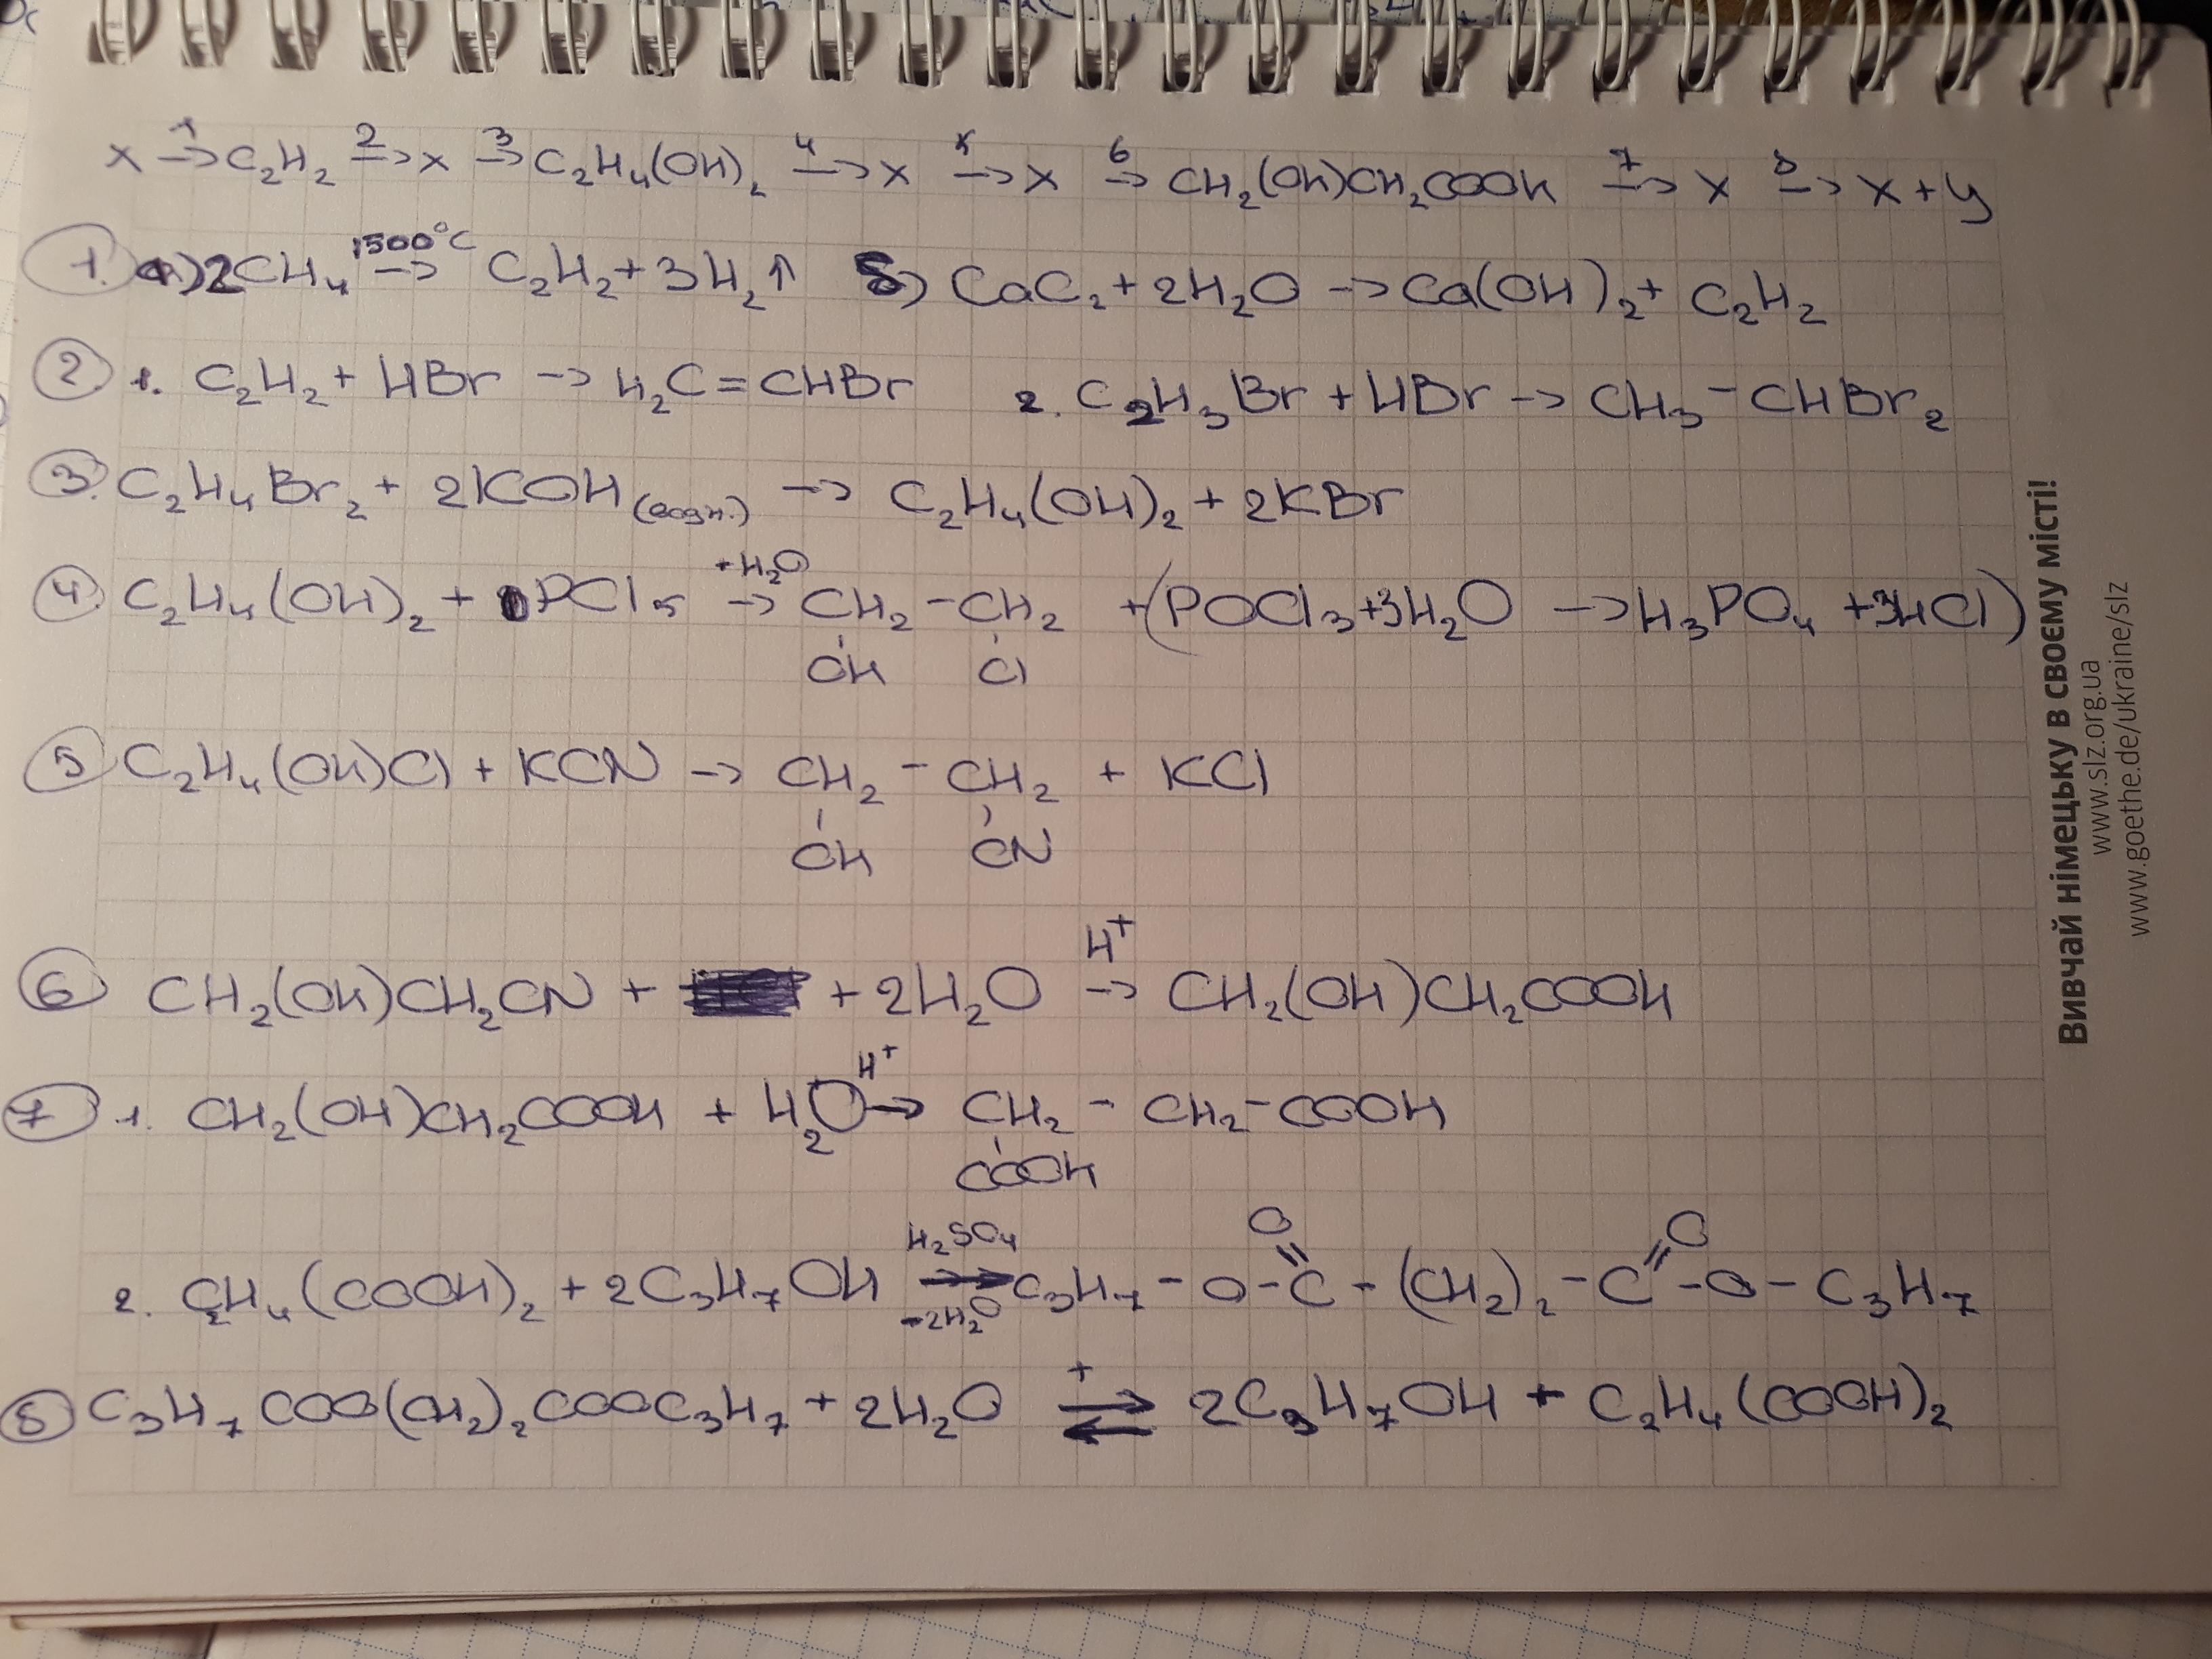 x →1 C₂H₂ →2 x →3 C₂H₄(OH)₂ →4 x →5 x →6 CH₂(OH)CH₂COOH →7 x →8 x + y
1. а) 2CH₄ →1500°C C₂H₂ + 3H₂↑ б) CaC₂ + 2H₂O → Ca(OH)₂ + C₂H₂
2. 1. C₂H₂ + HBr → H₂C = CHBr 2. C₂H₃Br + HBr → CH₃ - CHBr₂
3. C₂H₄Br₂ + 2KOH (водн.) → C₂H₄(OH)₂ + 2KBr
+H₂O
4. C₂H₄(OH)₂ + PCl₅ → CH₂ - CH₂ + (POCl₃ + 3H₂O → H₃PO₄ + 3HCl)
OH Cl
5 C₂H₄(OH)Cl + KCN → CH₂ - CH₂ + KCl
OH CN
H⁺
6 CH₂(OH)CH₂CN + + 2H₂O → CH₂(OH)CH₂COOH
H⁺
7 1. CH₂(OH)CH₂COOH + H₂O → CH₂ - CH₂ - COOH
COOH
H₂SO₄ O O
2. C₂H₄(COOH)₂ + 2C₃H₇OH → C₃H₇ - O - C - (CH₂)₂ - C - O - C₃H₇
-2H₂O
+
8 C₃H₇COO(CH₂)₂COOC₃H₇ + 2H₂O ⇄ 2C₃H₇OH + C₂H₄(COOH)₂
Вивчай німецьку в своєму місті!
www.slz.org.ua
www.goethe.de/ukraine/slz